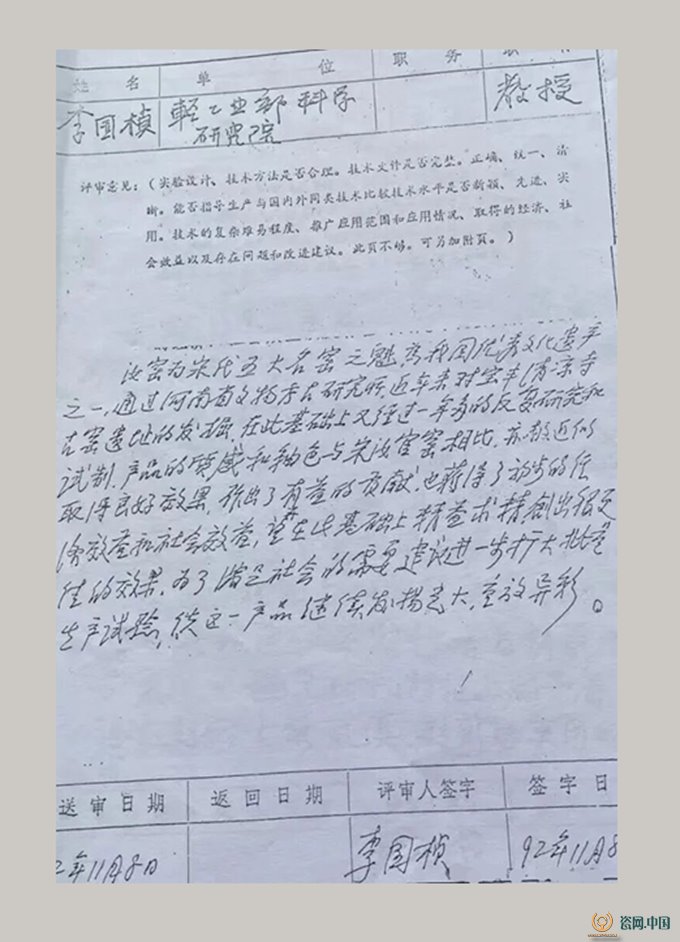 姓 名 单 位 职 务 职
李国桢 轻工业部科学 教授
研究院
评审意见：（实验设计、技术方法是否合理。技术文件是否完整。正确、统一、清
晰。能否指导生产与国内外同类技术比较技术水平是否新颖、先进、实
用。技术的复杂难易程度、推广应用范围和应用情况、取得的经济、社
会效益以及存在问题和改进建议。此页不够。可另加附页。）
汝窑为宋代五大名窑之魁，为我国优秀文化遗产
之一，通过河南省文物考古研究所，近年来对宝丰清凉寺
古窑遗址的发掘，在此基础上又经过一年多的反复研究和
试制，产品的质感和釉色与宋汝官窑相比，亦较近似
取得良好效果，作出了有益的贡献，也获得了初步的经
济效益和社会效益，望在此基础上精益求精创出更
佳的效果，为了满足社会的需要建议进一步扩大批量
生产试验，使这一产品继续发扬光大，重放异彩。
送审日期 返回日期 评审人签字 签字日
2年11月8日 李国桢 92年11月8
瓷网.中国